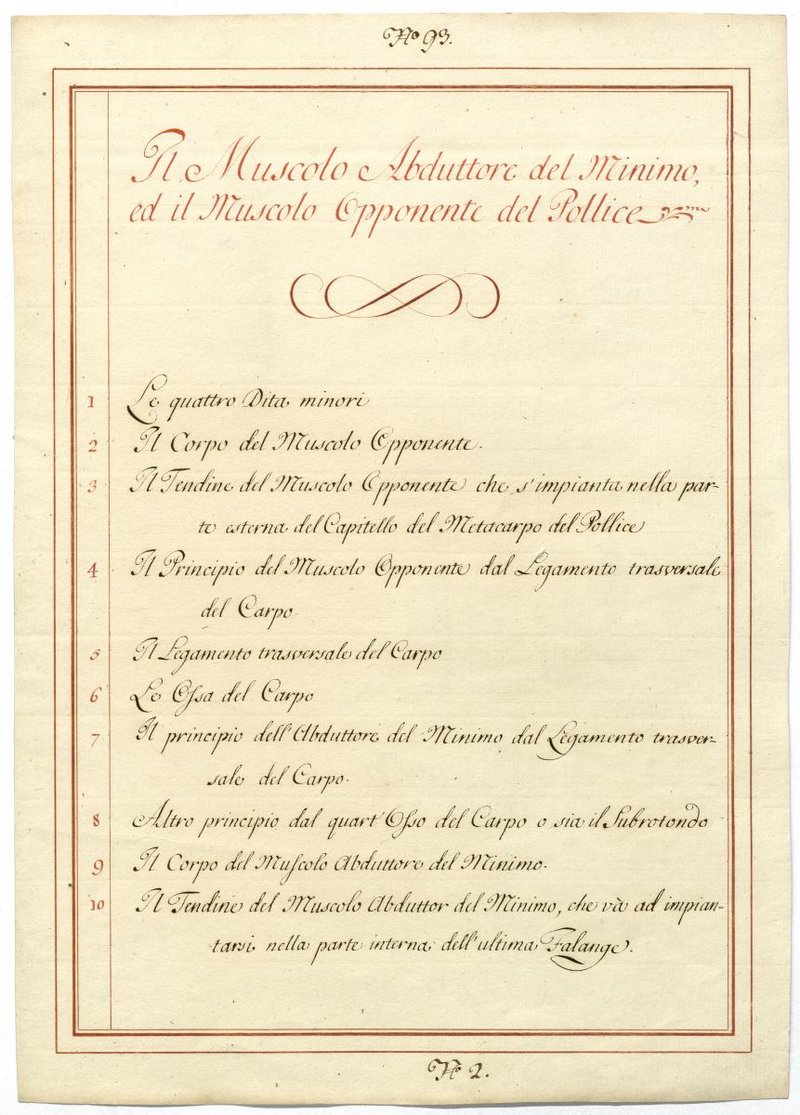 No 93.
Il Muscolo Abduttore del Minimo,
ed il Muscolo Opponente del Pollice
1 Le quattro Dita minori
2 Il Corpo del Muscolo Opponente.
3 Il Tendine del Muscolo Opponente che s'impianta nella par-
te esterna del Capitello del Metacarpo del Pollice
4 Il Principio del Muscolo Opponente dal Legamento trasversale
del Carpo.
5 Il Legamento trasversale del Carpo
6 Le Ossa del Carpo
7 Il principio dell'Abduttore del Minimo dal Legamento trasver-
sale del Carpo.
8 Altro principio dal quart'Osso del Carpo o sia il Subrotondo
9 Il Corpo del Muscolo Abduttore del Minimo.
10 Il Tendine del Muscolo Abduttor del Minimo, che và ad impian-
tarsi nella parte interna dell'ultima Falange.
No 2.